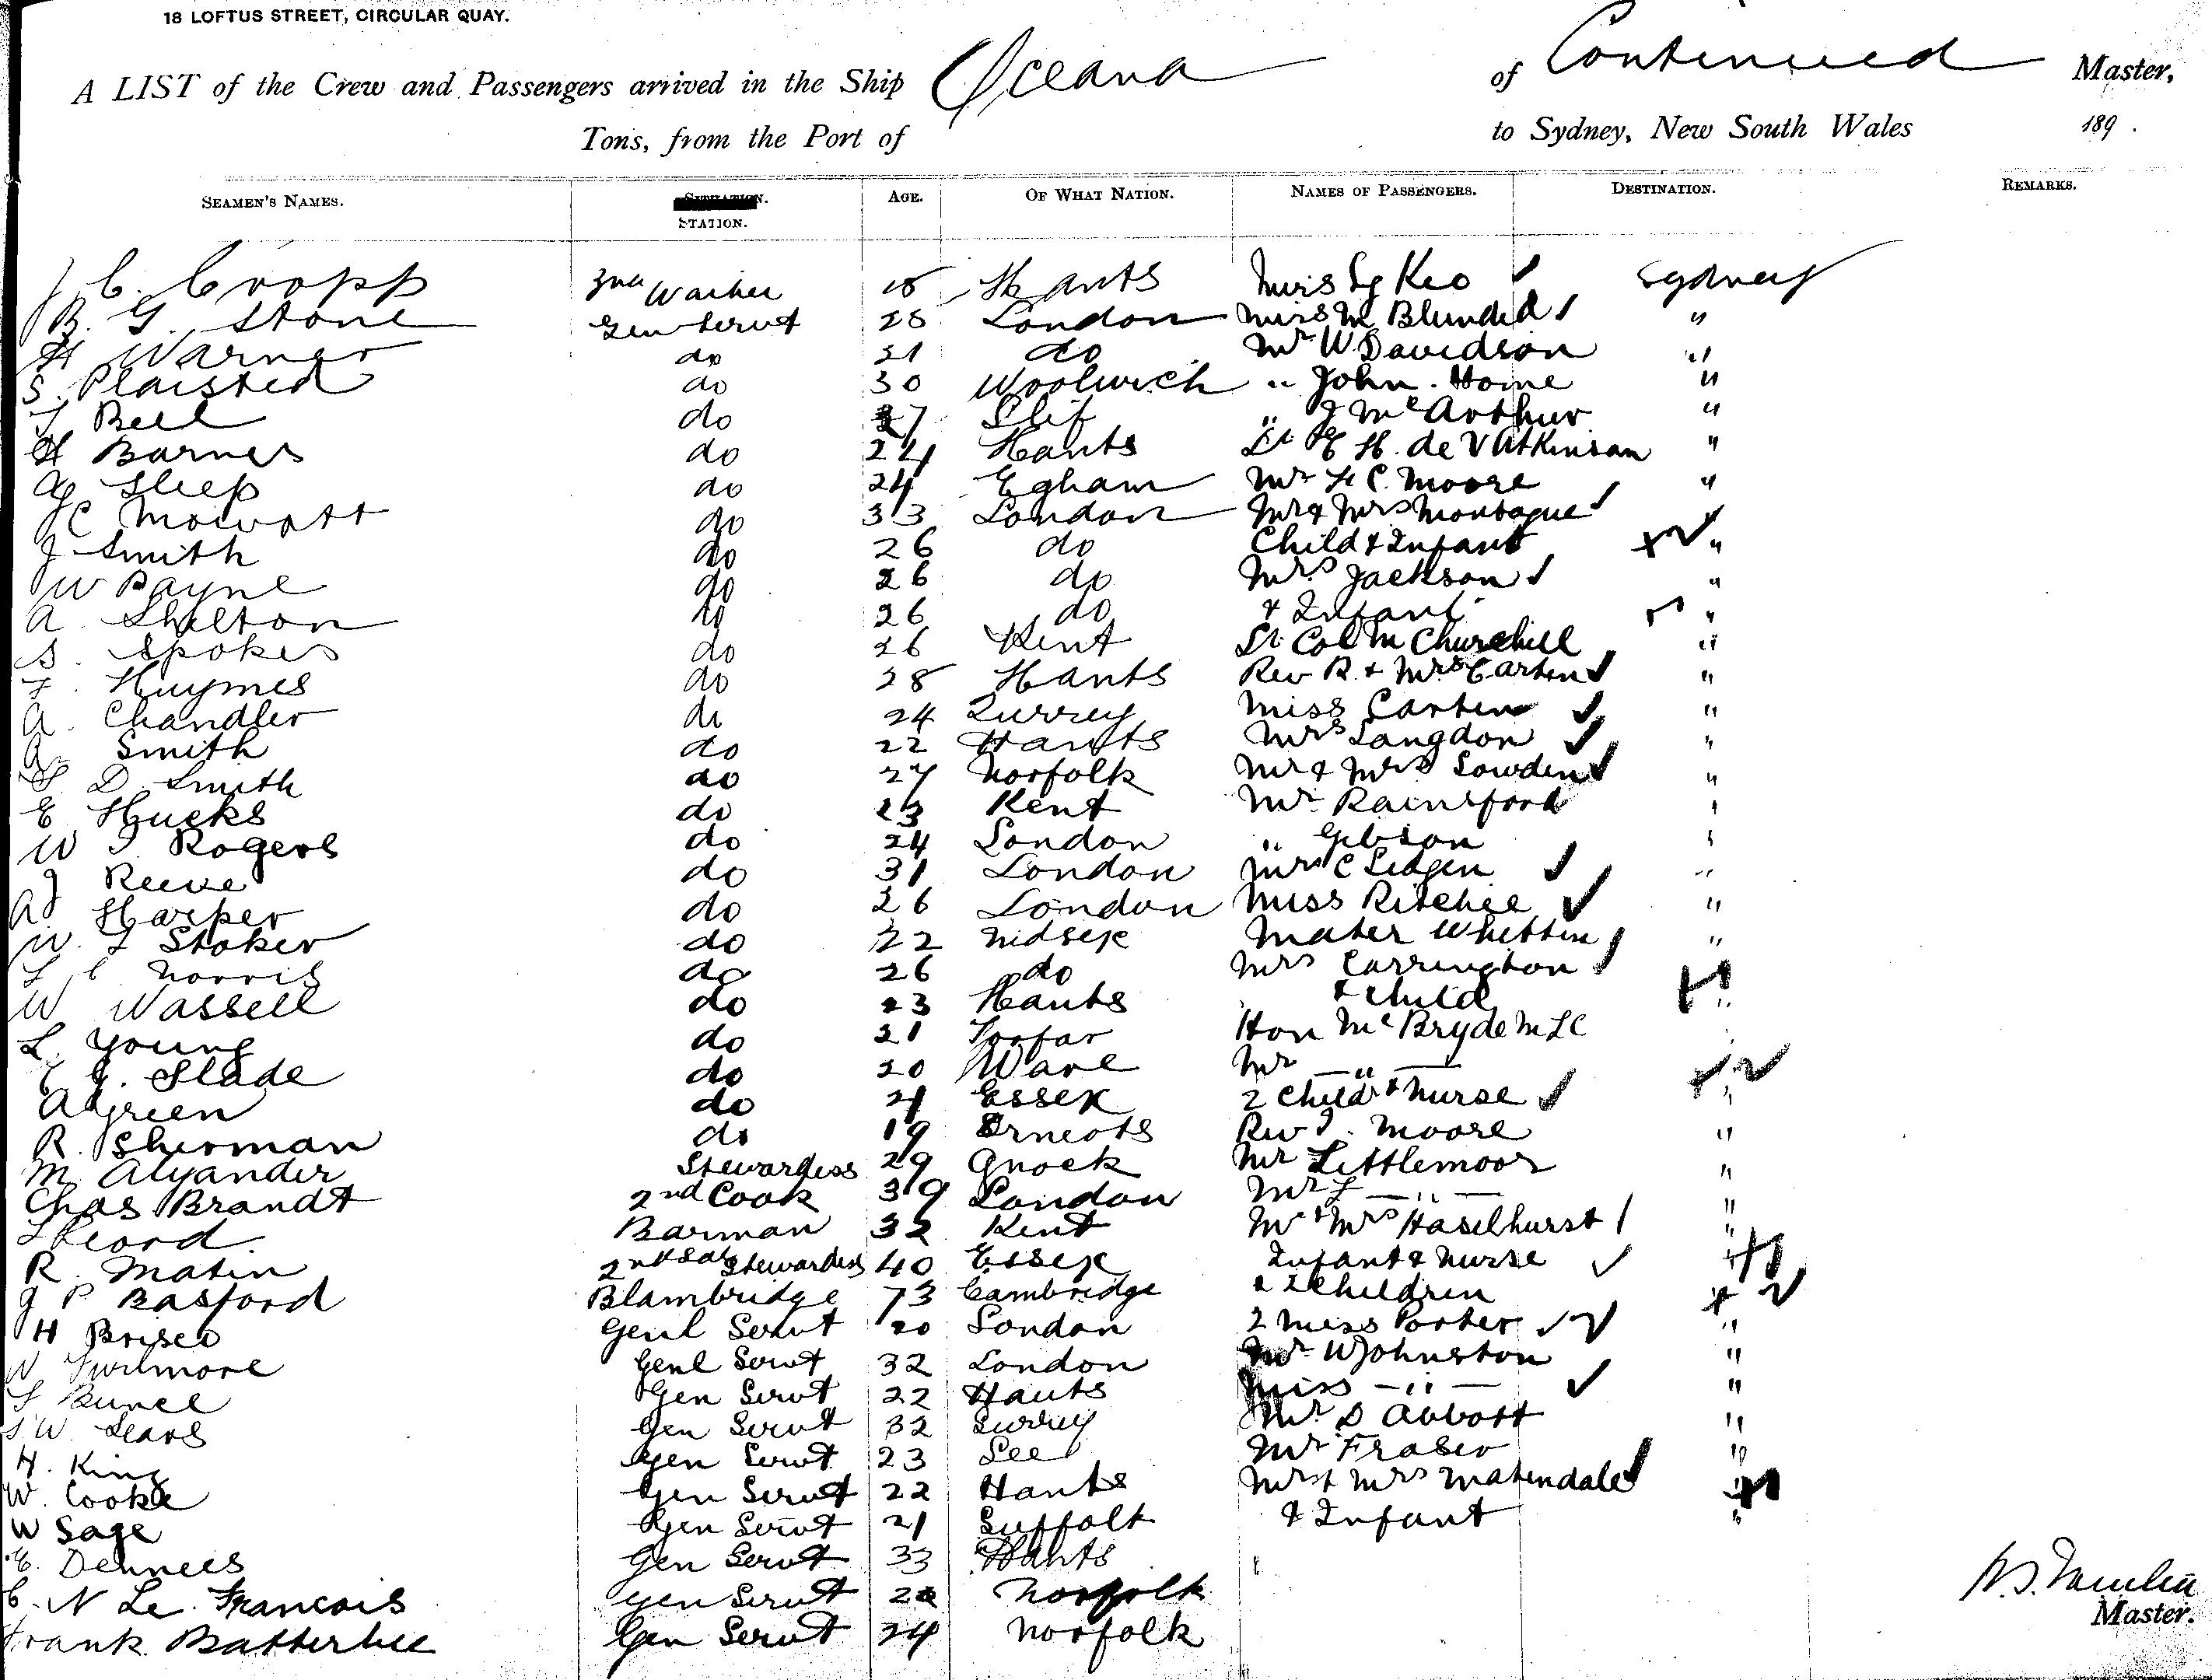 18 LOFTUS STREET, CIRCULAR QUAY.
A LIST of the Crew and Passengers arrived in the Ship Oceana of Continued Master,
Tons, from the Port of to Sydney, New South Wales 189 .
SEAMEN'S NAMES. STATION. AGE. OF WHAT NATION. NAMES OF PASSENGERS. DESTINATION. REMARKS.
C. Cropp Hants Sydney
B. G. Stone Gen Servt 28 London Miss M Blundell "
H Warner do 31 do Mr W. Davidson "
S. Plaisted do 30 Woolwich " John. Home "
Bell do 27 " J McArthur "
H Barnes do 24 Hants Lt E H. de V Atkinson "
Sleep do 24 Egham Mr H C. Moore "
C Mowatt do 33 London Mr & Mrs Montague
J Smith do 26 do Child & Infant "
W Payne do 26 do Mrs Jackson "
A Shelton do 26 do & Infant "
S. Spokes do 26 Kent Lt Col M Churchill "
F. Huymes do 28 Hants Rev R. & Mrs Carten "
A. Chandler do 24 Surrey Miss Carten "
A. Smith do 22 Hants Mrs Langdon "
D. Smith do 27 Norfolk Mr & Mrs Lowden "
E Hucks do 23 Kent Mr Rainsford "
W J. Rogers do 24 London " Gibson "
J Reeve do 31 London Mrs C Ledgen "
A J Harper do 26 London Miss Ritchie "
W. J Stoker do 22 Midsex "
Norris do 26 do Mrs Carrington
W Wassell do 23 Hants & Child "
L. Young do 21 Forfar Hon McBryde MLC
E J. Slade do 20 Ware Mr — " —
A Green do 21 Essex 2 Child & Nurse "
R. Sherman do 19 Rev J. Moore "
M. Alyander Stewardess 29 Mr Littlemoor "
Chas Brandt 2nd Cook 39 London — " — "
Barman 32 Kent Mr & Mrs Haselhurst "
R. Matin 2nd Sal Stewardess 40 Essex Infant & Nurse
J P Basford 73 Cambridge & 2 Children
H Brisco Genl Servt 20 London 2 Miss Porter "
W Genl Servt 32 London Mr W Johnston "
Gen Servt 22 Hants Miss — " — "
W. Sears Gen Servt 32 Surrey Mr D Abbott "
H. King Gen Servt 23 Lee Mr Fraser "
W. Cooke Gen Servt 22 Hants Mr & Mrs Matendale
W Sage Gen Servt 21 Suffolk & Infant "
E. Dennees Gen Servt 33 Hants
C. N Le Francois Gen Servt Norfolk
Frank Batterbee Gen Servt 24 Norfolk
Master.